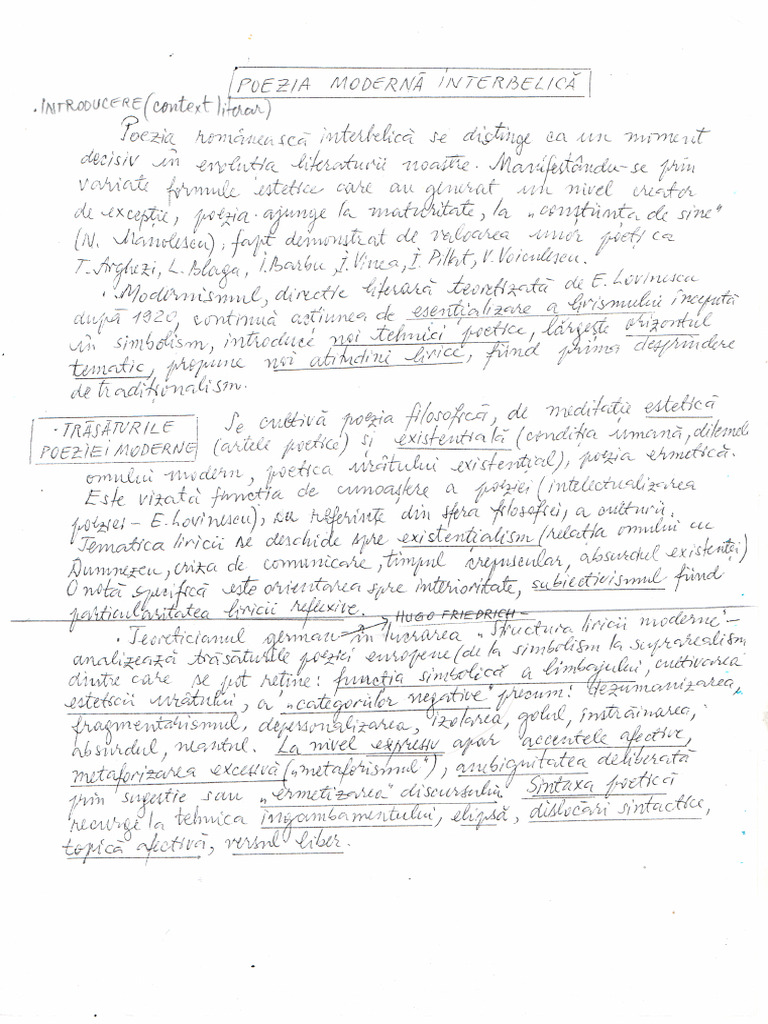 POEZIA MODERNĂ INTERBELICĂ
• INTRODUCERE (context literar)
Poezia românească interbelică se distinge ca un moment
decisiv în evoluția literaturii noastre. Manifestându-se prin
variate formule estetice care au generat un nivel creator
de excepție, poezia ajunge la maturitate, la „conștiința de sine"
(N. Manolescu), fapt demonstrat de valoarea unor poeți ca
T. Arghezi, L. Blaga, I. Barbu, I. Vinea, I. Pillat, V. Voiculescu.
• Modernismul, direcție literară teoretizată de E. Lovinescu
după 1920, continuă acțiunea de esențializare a lirismului începută
în simbolism, introduce noi tehnici poetice, lărgește orizontul
tematic, propune noi atitudini lirice, fiind prima desprindere
de traditionalism.
• TRĂSĂTURILE
POEZIEI MODERNE
Se cultivă poezia filosofică, de meditație estetică
(artele poetice) și existențială (condiția umană, dilemele
omului modern, poetica urâtului existențial), poezia ermetică.
Este vizată funcția de cunoaștere a poeziei (intelectualizarea
poeziei - E. Lovinescu), cu referințe din sfera filosofiei, a culturii.
Tematica liricii se deschide spre existențialism (relația omului cu
Dumnezeu, criza de comunicare, timpul crepuscular, absurdul existenței)
O notă specifică este orientarea spre interioritate, subiectivismul fiind
particularitatea liricii reflexive.
HUGO FRIEDRICH -
• Teoreticianul german în lucrarea „Structura liricii moderne" -
analizează trăsăturile poeziei europene (de la simbolism la suprarealism
dintre care se pot reține: funcția simbolică a limbajului, cultivarea
esteticii urâtului, a „categoriilor negative" precum: dezumanizarea,
fragmentarismul, depersonalizarea, izolarea, golul, înstrăinarea,
absurdul, neantul. La nivel expresiv apar accentele afective,
metaforizarea excesivă („metaforismul"), ambiguitatea deliberată
prin sugestie sau „ermetizarea" discursului. Sintaxa poetică
recurge la tehnica ingambamentului, elipsă, dislocări sintactice,
topică afectivă, versul liber.